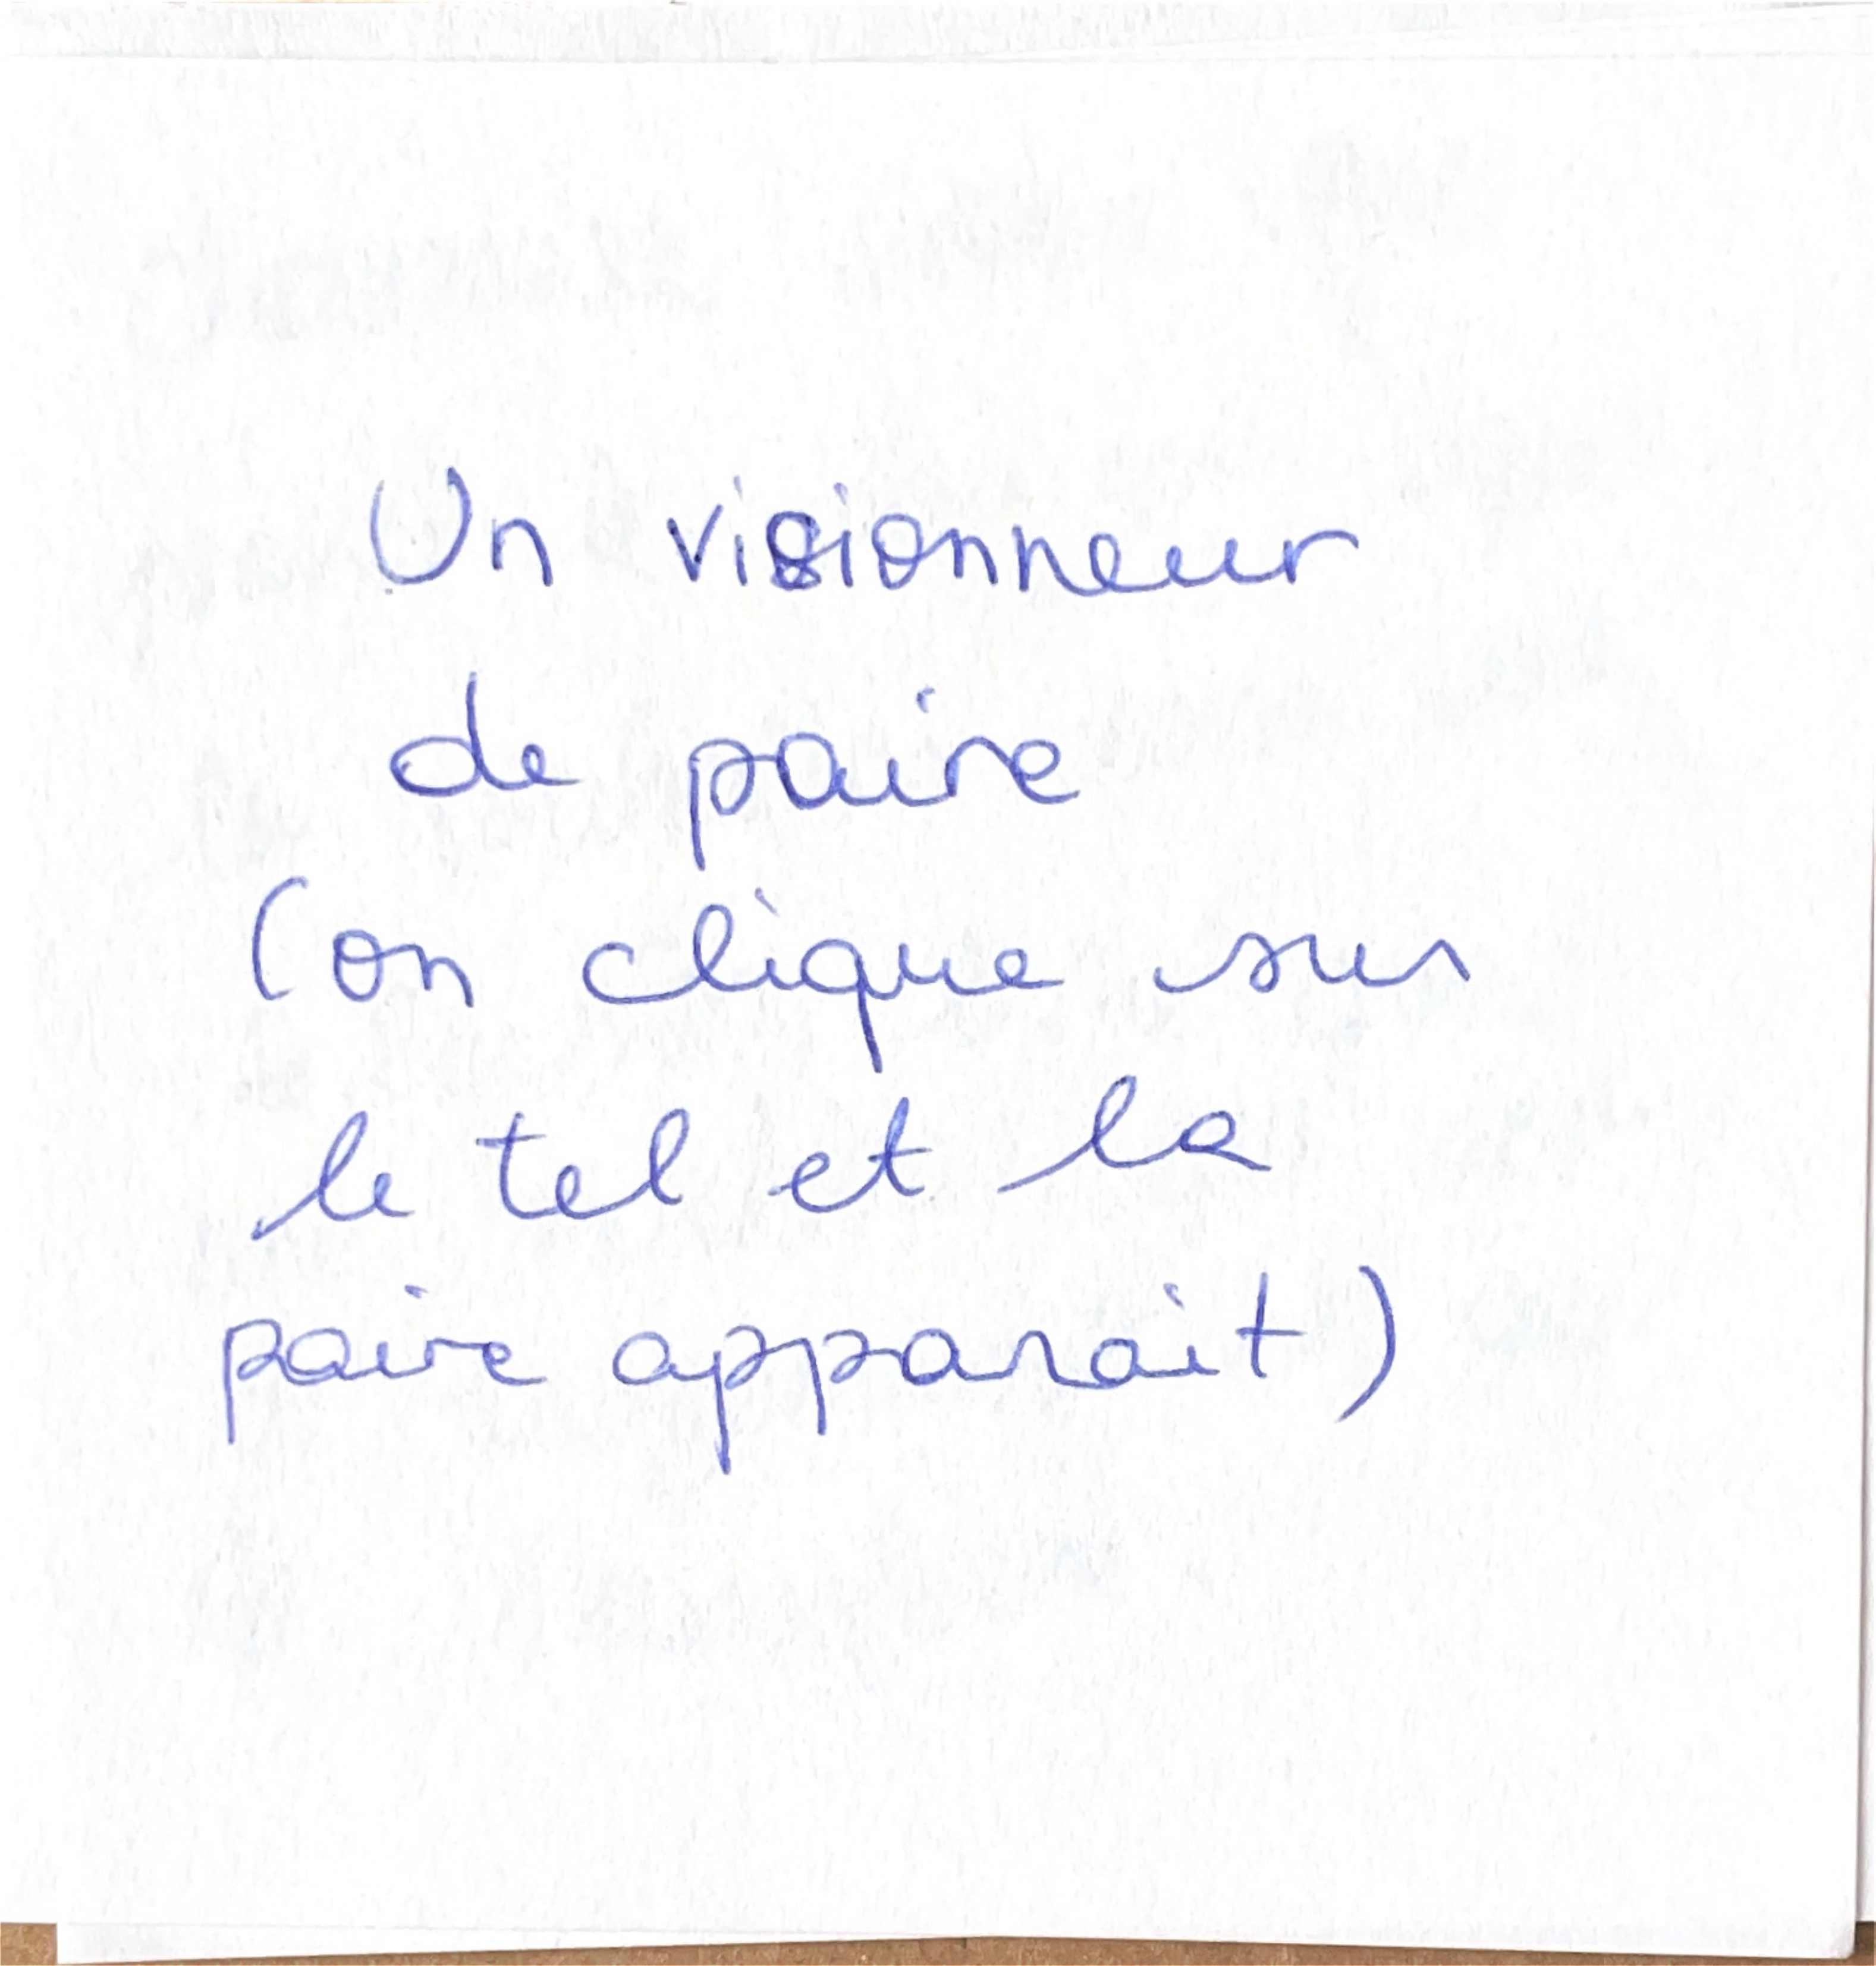 Un visionneur
de paire
(on clique sur
le tel et la
paire apparait)